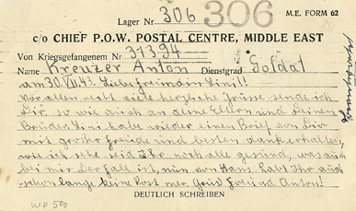 Lager Nr 306 306 M.E. FORM 62
c/o CHIEF P.O.W. POSTAL CENTRE, MIDDLE EAST
Von Kriegsgefangenem Nr 31394
Name Kreuzer Anton Dienstgrad Soldat
am 30.VII.43. Liebe freundin Tini!!
Vor allem recht viele herzliche Grüsse sende ich
Dir, so wie auch an deine Eltern und Deinen
Bruder. Tini habe wieder einen Brief von Dir
mit großer freude und besten dank erhalten,
wie ich sehe seid Ihr noch alle gesund, was auch
bei mir der fall ist, nur von Hans habt Ihr auch
schon lange keine Post mer. Gruß Freund Anton!
DEUTLICH SCHREIBEN
WP 500